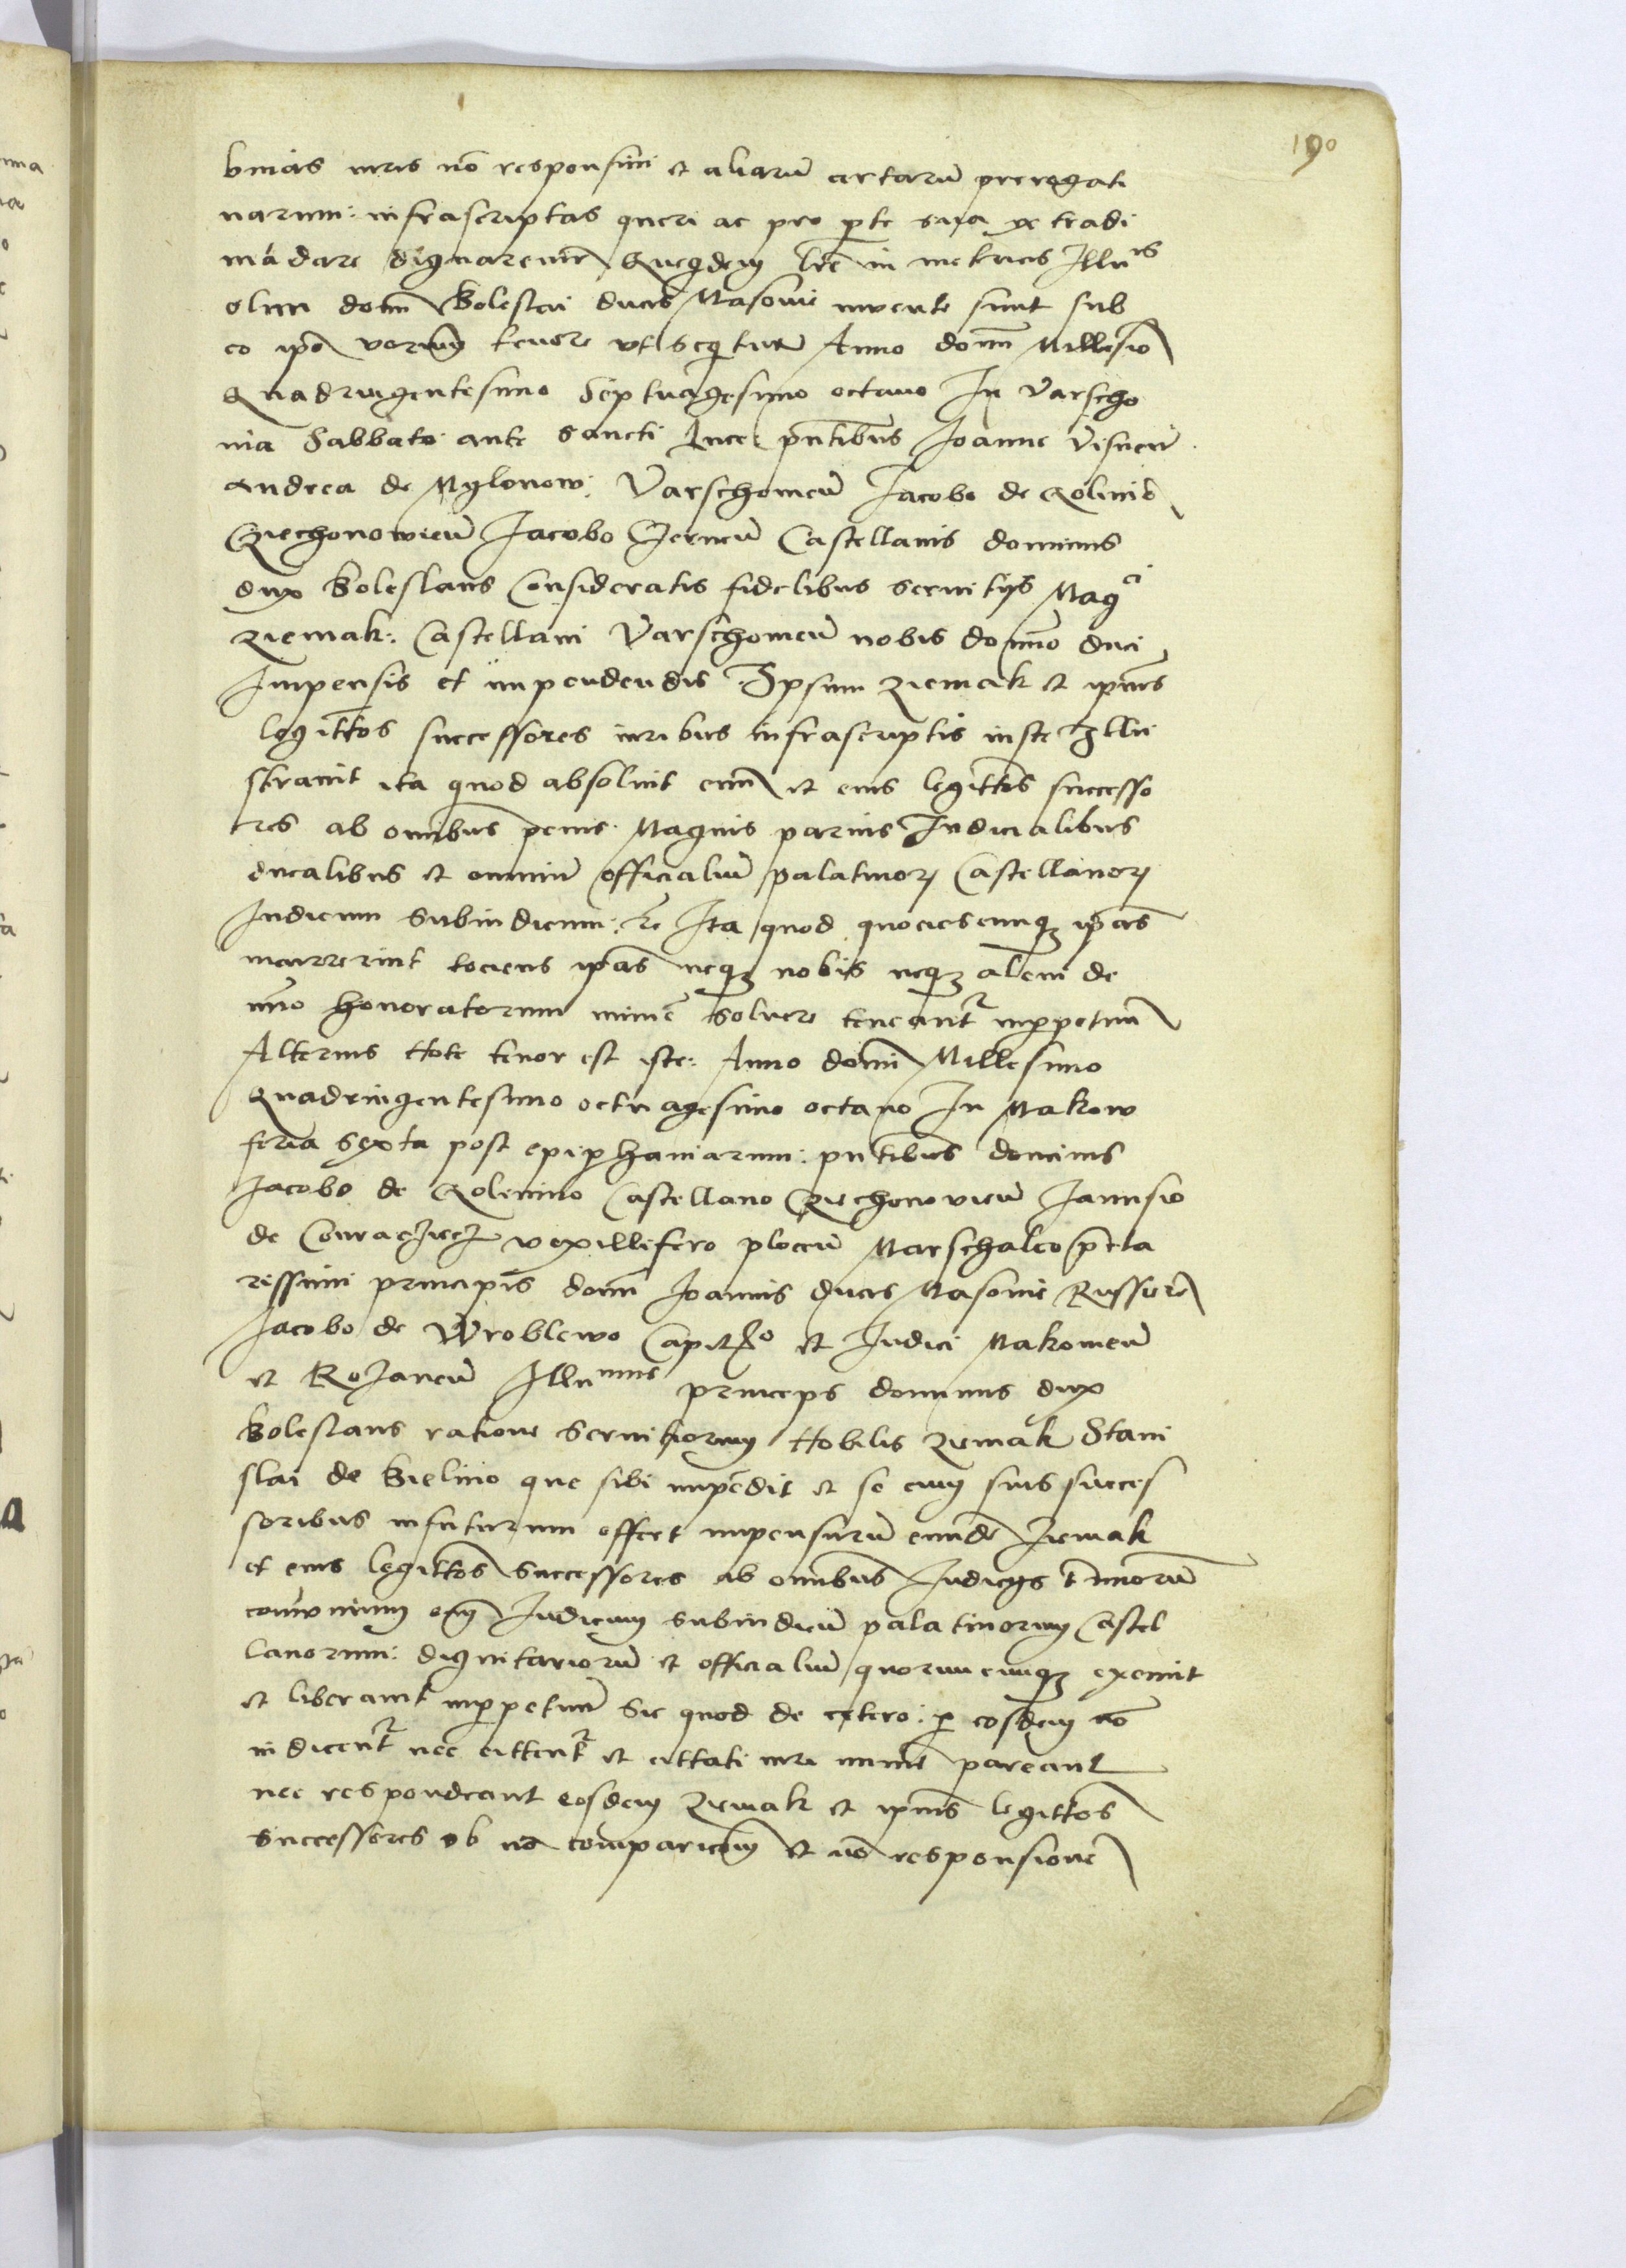 190
bnias iuris nō responsiui et aliarū certarū preregati
uarum: infrascriptas queri ac pro pte sua ex tradi
mādare dignaremr Queqdem lre in metricis Illris
olim dom̄ Boleslai ducis Masouie inuente sunt sub
eo ipso verorum tenore vt sequitur Anno domī Millesīo
Quadringentesimo Septuagesimo octauo In Varscho
uia Sabbato ante sancti luce pntibus Joanne Visneū
Andrea de Mylonow: Varschoueū Jacobo de Golimi
Cziechonowieū Jacobo Czerneū Castellanis dominus
dux Boleslaus Consideratis fidelibus seruitijs Magci
ziemak: Castellani Varschoueū nobis domīno duci
Impensis et impendendis Ipsum ziemak et ipius
legittos successores iuribus infrascriptis iuste Illu
strauit ita quod absoluit eum et eius legittos successo
res ab omībus penis: Magnis paruis Iudicialibus
ducalibus et omnium officialiū palatinorz Castellanorz
Iudicum Subiudicum: zc Ita quod quociescunqz ipās
incurrerint tociens ipās neqz nobis neqz alteri de
nrō honoratorum minīe soluere teneantr inppetuū
Alterius Note tenor est iste: Anno domī Millesimo
Quadringentesimo octuagesimo octauo In Makow
feria sexta post epiphaniarum: pntibus dominis
Jacobo de Golemino Castellano Cziechonovieū Janusio
de vexillifero ploceū Marschalco preta
rissimi principis domī Joannis ducis Masouie Russie zc
Jacobo de Wroblewo Capitneo et Judici Makoueū
et Rozaneū Illumus princeps dominus dux
Boleslaus ratione seruitiorum Nobilis ziemak Stani
slai de Bielino que sibi impēdit et se cum suis succes
soribus infuturum offert impensurū eundē ziemak
et eius legittos successores ab omībus Judicijs trminorū
omnium Judicum subiudicū palatinorum Castel
lanorum: dignitariorū et officialiū quorumcunqz exemit
et liberauit inppetuū sic quod de cetero: p eosdem nō
iudicentr nec cittentr et cittati iuri minīe pareant
nec respondeant eosdem ziemak et ipius legittos
successores ob nō comparicōem et nō responsionē